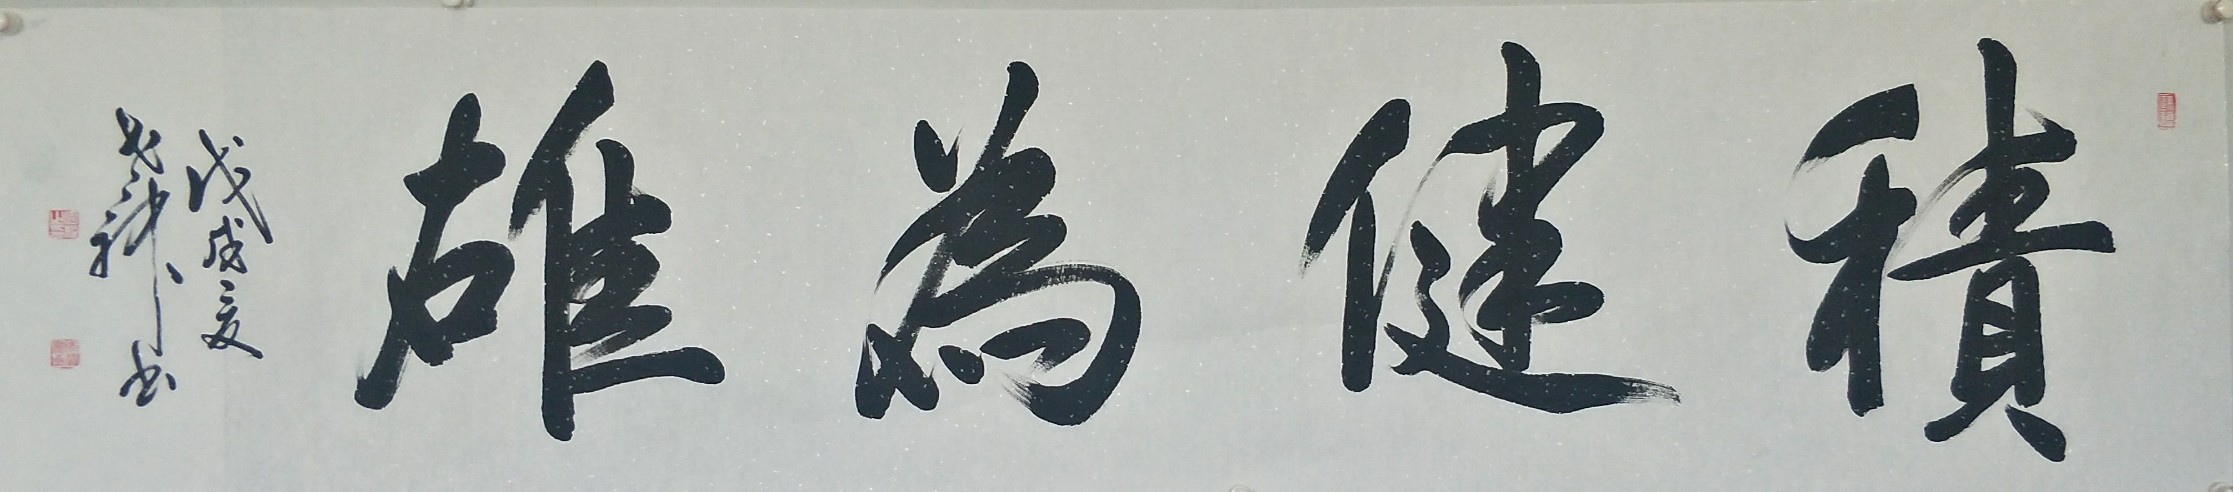 積健為雄
戊戌夏
書